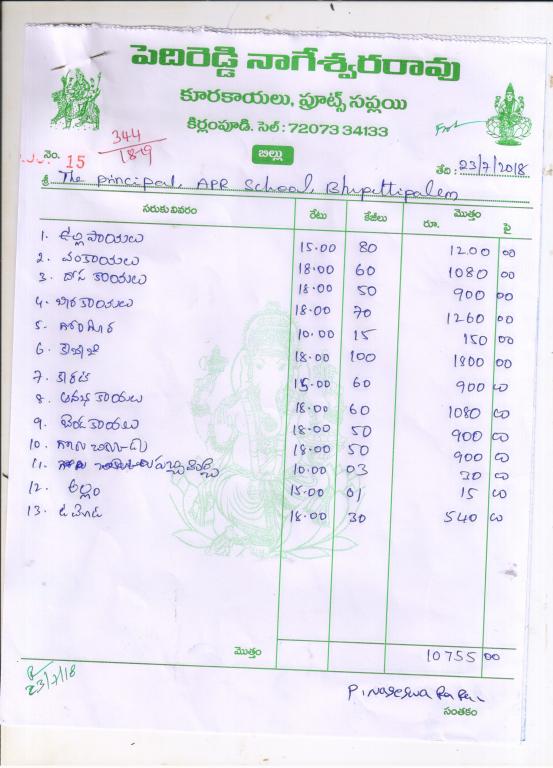 పెదిరెడ్డి నాగేశ్వరరావు
కూరకాయలు, ఫ్రూట్స్ సప్లయి
కిర్లంపూడి. సెల్ : 72073 34133
344
1819
నెం. 15
బిల్లు
తేది : 23/7/2018
శ్రీ The principal, APR School, Bhupattipalem
సరుకు వివరం రేటు కేజీలు మొత్తం
రూ. పై
1. ఉల్లిపాయలు 15.00 80 1200 00
2. వంకాయలు 18.00 60 1080 00
3. దోసకాయలు 18.00 50 900 00
4. బీరకాయలు 18.00 70 1260 00
5. గోంగూర 10.00 15 150 00
6. కాబేజి 18.00 100 1800 00
7. కారట్ 15.00 60 900 00
8. ఆనబకాయలు 18.00 60 1080 00
9. బెండకాయలు 18.00 50 900 00
10. 18.00 50 900 00
11. పచ్చిమిర్చి 10.00 03 30 00
12. అల్లం 15.00 01 15 00
13. టమోట 18.00 30 540 00
మొత్తం 10755 00
23/7/18
P. Nageswa Ra Rao
సంతకం